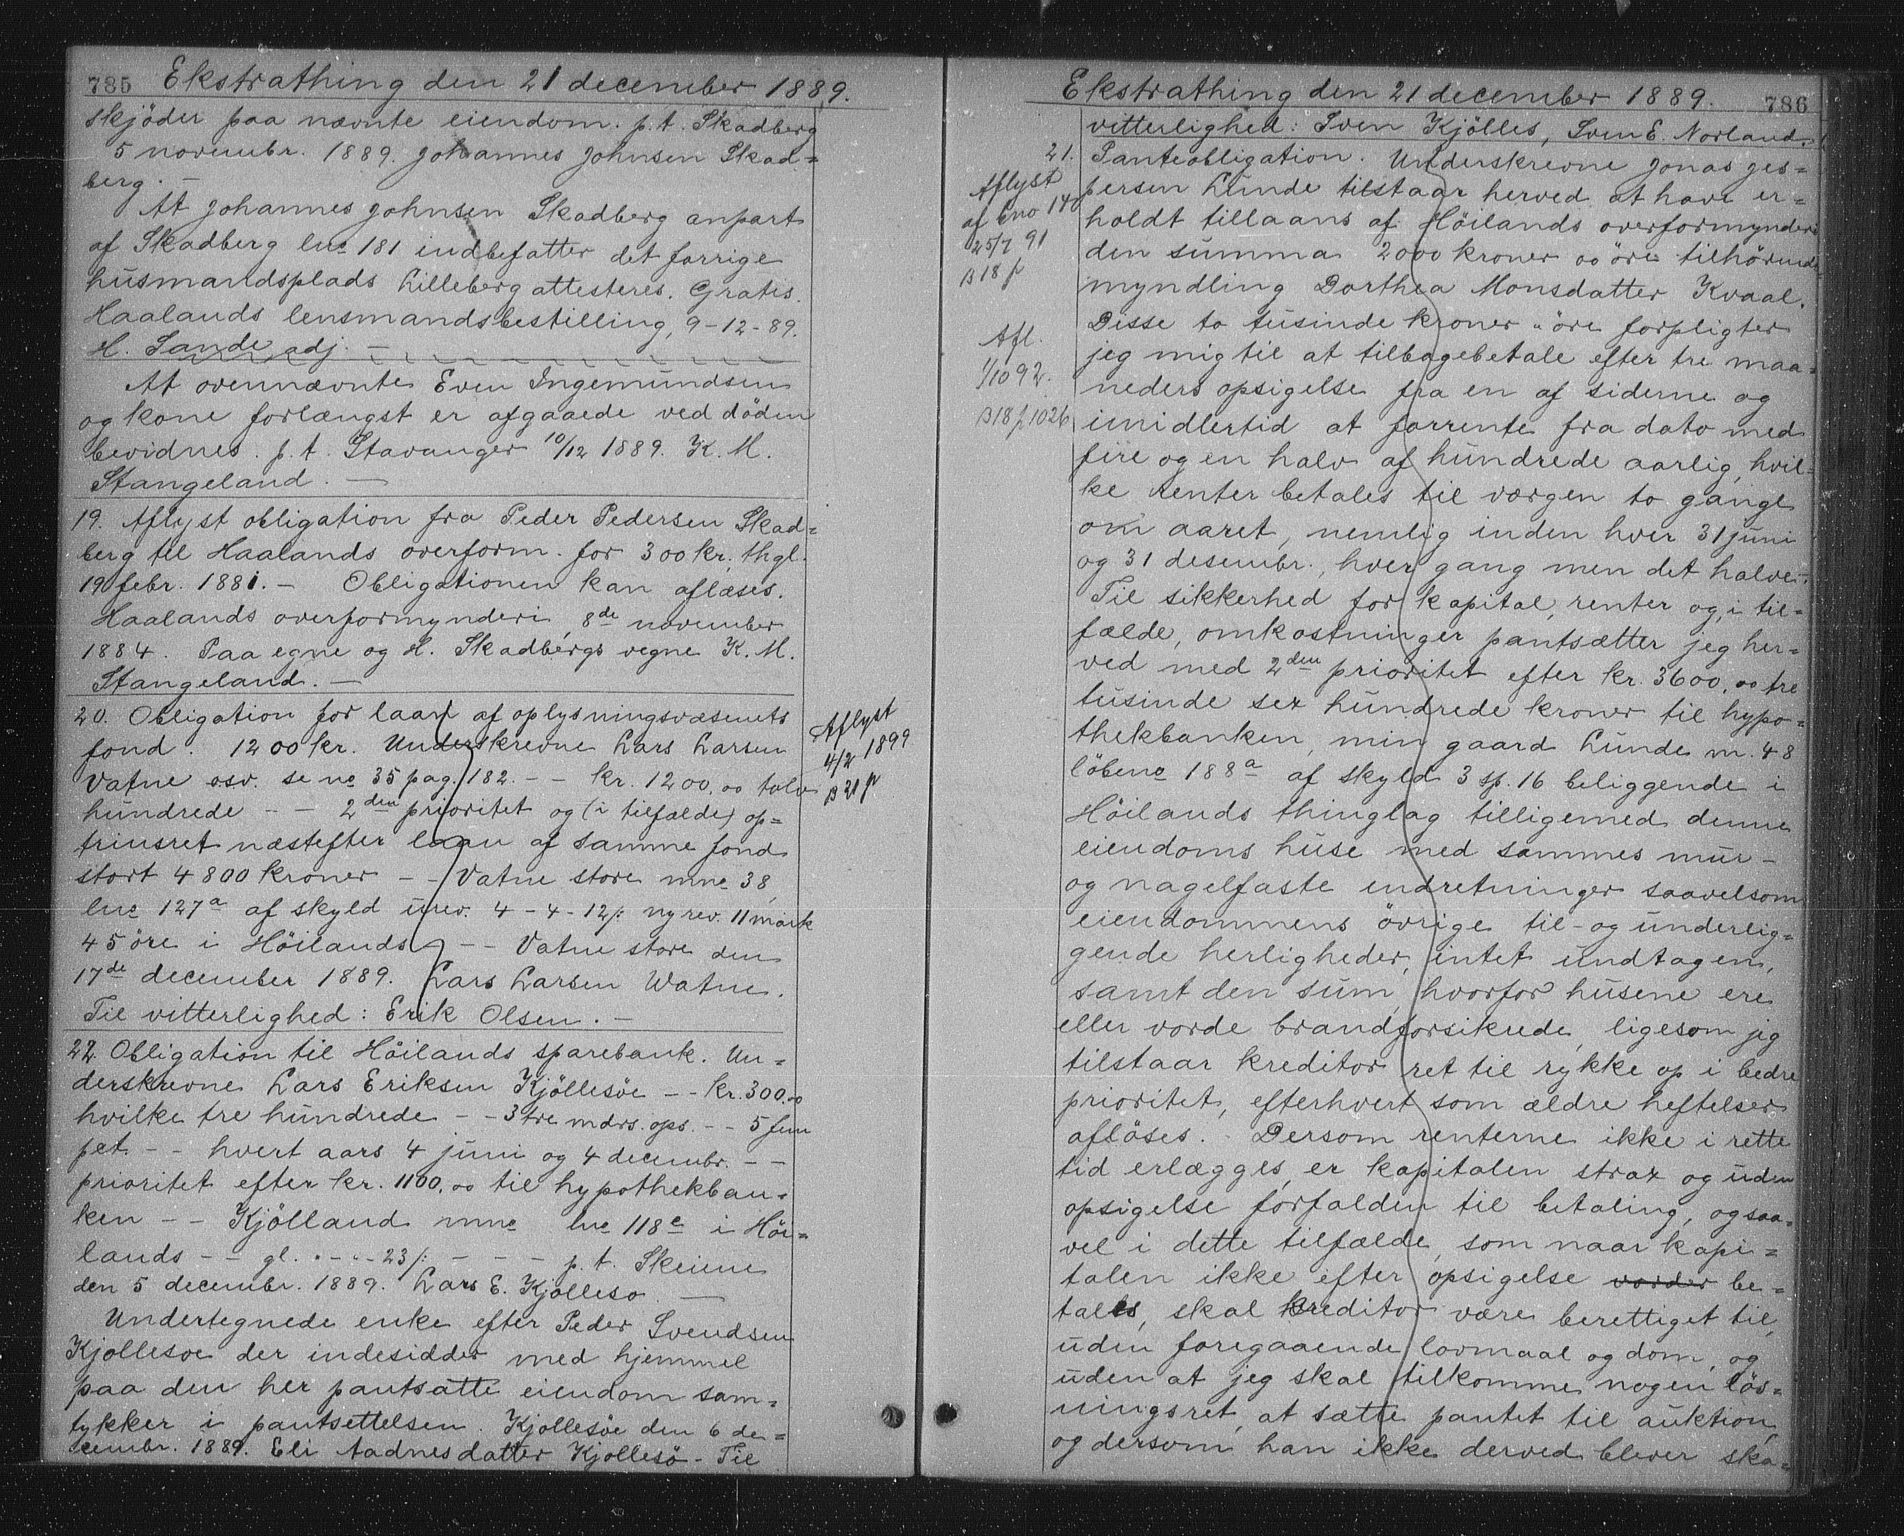 785 Ekstrathing den 21 december 1889.
skjöder paa nævnte eiendom. p.t. Skadberg
5 novembr. 1889. Johannes Johnsen Skad=
berg. —
At Johannes Johnsen Skadberg anpart
af Skadberg lnº 181 indbefatter det forrige
husmandsplads Lilleberg attesteres. Gratis.
Haalands lensmandsbestilling, 9-12-89.
H. Sande adj. —
At ovennævnte Even Ingemundsen
og kone forlængst er afgaaede ved döden
bevidnes. p.t. Stavanger 10/12 1889. K. M.
Stangeland. —
19. Aflyst obligation fra Peder Pedersen Skad=
berg til Haalands overform. for 300 kr. thgl.
19 febr. 1881. — Obligationen kan aflæses.
Haalands overformynderi, 8de november
1884. Paa egne og H. Skadbergs vegne K. M.
Stangeland. —
20. Obligation for laan af oplysningsvæsenets
fond. 1200 kr. Underskrevne Lars Larsen
Vatne osv. se no 35 pag. 182. — — kr. 1200,00 tolv
hundrede — — 2den prioritet og (i tilfælde) op=
trinsret næstefter laan af samme fond
stort 4800 kroner — — Vatne store mnº 38,
lnº 127a af skyld urev. 4-4-12/: ny rev. 11 mark
45 öre i Höilands — — Vatne store den
17de december 1889. Lars Larsen Watne.
Til vitterlighed: Erik Olsen. —
Aflyst
4/2 1899
B 21 p
22. Obligation til Höilands sparebank. Un=
derskrevne Lars Eriksen Kjöllesöe — — kr. 300,00
hvilke tre hundrede — — 3 tre mdrs. ops. — — 5 fem
pct — — hvert aars 4 juni og 4 decembr. — —
prioritet efter kr. 1100,00 til hypothekban=
ken — — Kjölland mnº lnº 118e i Höi=
lands — — gl. · — · - 23/: — — — p.t. Skeiene
den 5 decembr. 1889. Lars E. Kjölleso. —
Undertegnede enke efter Peder Svendsen
Kjöllesoe der indesidder med hjemmel
paa den her pantsatte eiendom sam=
tykker i pantsettelsen. Kjollesöe den 6 de=
cembr. 1889. Eli Aadnesdatter Kjollesö - Til
Ekstrathing den 21 december 1889. 786
vitterlighed: Sven Kjölles, Sven E. Norland.
21. Panteobligation. Underskrevne Jonas Jes=
persen Lunde tilstaar herved at have er=
holdt tillaans af Höilands overformynderi
den summa 2000 kroner 00 öre tilhörende
myndling Dorthea Monsdatter Kvaal.
Disse to tusinde kroner " öre forpligter
jeg mig til at tilbagebetale efter tre maa=
neders opsigelse fra en af siderne og
imidlertid at forrente fra dato med
fire og en halv af hundrede aarlig, hvil=
ke renter betales til værgen to gange
om aaret, nemlig inden hver 31 juni
og 31 desembr., hver gang men det halve.
Til sikkerhed for kapital, renter og, i til=
fælde, omkostninger pantsætter jeg her=
ved med 2den prioritet efter kr. 3600,00 tre
tusinde sex hundrede kroner til hypo=
thekbanken, min gaard Lunde m. 48
löbenº 188a af skyld 3 sp. 16 beliggende i
Höilands thinglag tilligemed denne
eiendoms huse med sammes mur-
og nagelfaste indretninger saavelsom
eiendommens övrige til- og underlig=
gende herligheder, intet undtagen,
samt den sum, hvorfor husene ere
eller vorde brandforsikrede, ligesom jeg
tilstaar kreditor ret til rykke op i bedre
prioritet, efterhvert som ældre heftelser
aflöses. - Dersom renterne ikke i rette
tid erlægges, er kapitalen strax og uden
opsigelse forfalden til betaling, ogsaa=
vel i dette tilfælde, som naar kapi=
talen ikke efter opsigelse vorder be=
tales, skal kreditor være berettiget til,
uden foregaaende lovmaal og dom, og
uden at jeg skal tilkomme nogen lös=
ningsret, at sætte pantet til auktion,
og dersom han ikke derved bliver ska=
Aflyst
af lno 140
25/7 91
B 18 p
Afl.
1/10 92.
B 18 p 1026